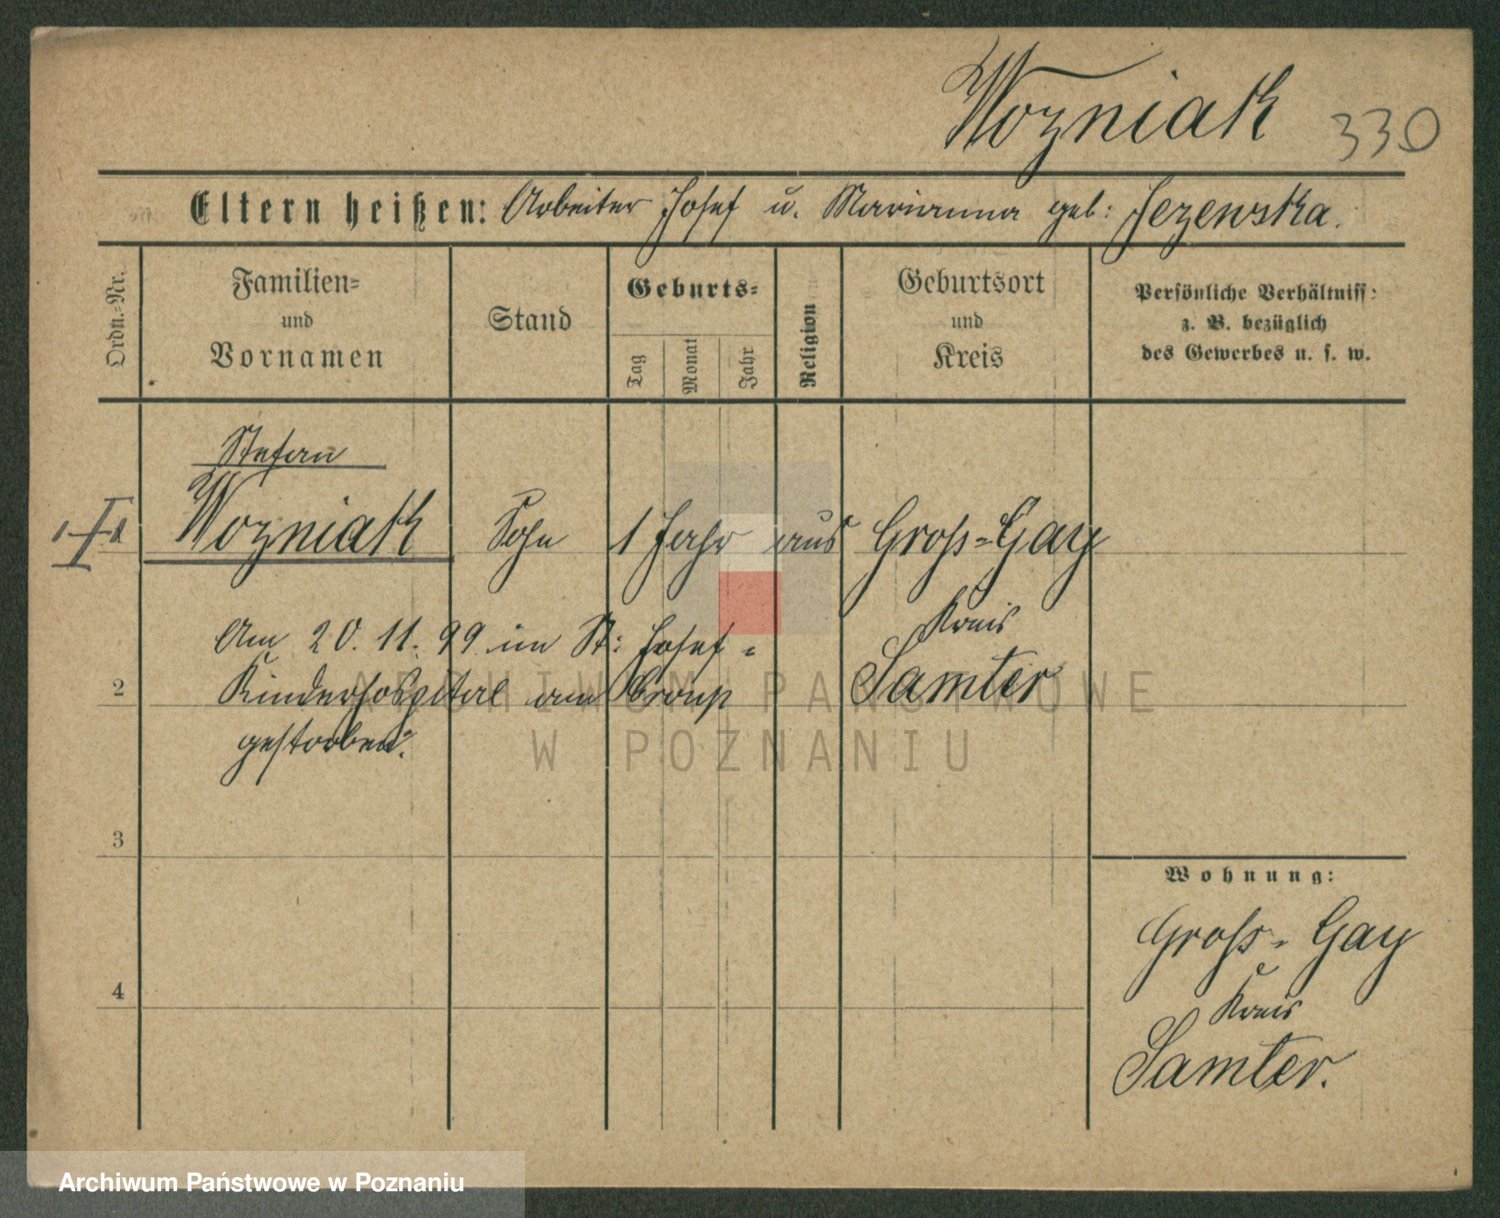 Wozniak 330
Eltern heißen: Arbeiter Josef u. Marianna geb: Jezewska.
Ordn.-Nr.
Familien-
und
Vornamen
Stand
Geburts-
Tag
Monat
Jahr
Religion
Geburtsort
und
Kreis
Persönliche Verhältniss:
z. B. bezüglich
des Gewerbes u. s. w.
Stefan
Wozniak Sohn 1 Jahr aus Gross-Gay
Kreis
Samter
Am 20. 11. 99 im St: Josef-
2 Kinderhospital am Croup
gestorben.
3
4
Wohnung:
Gross-Gay
Kreis
Samter.
ARCHIWUM PAŃSTWOWE
W POZNANIU
Archiwum Państwowe w Poznaniu